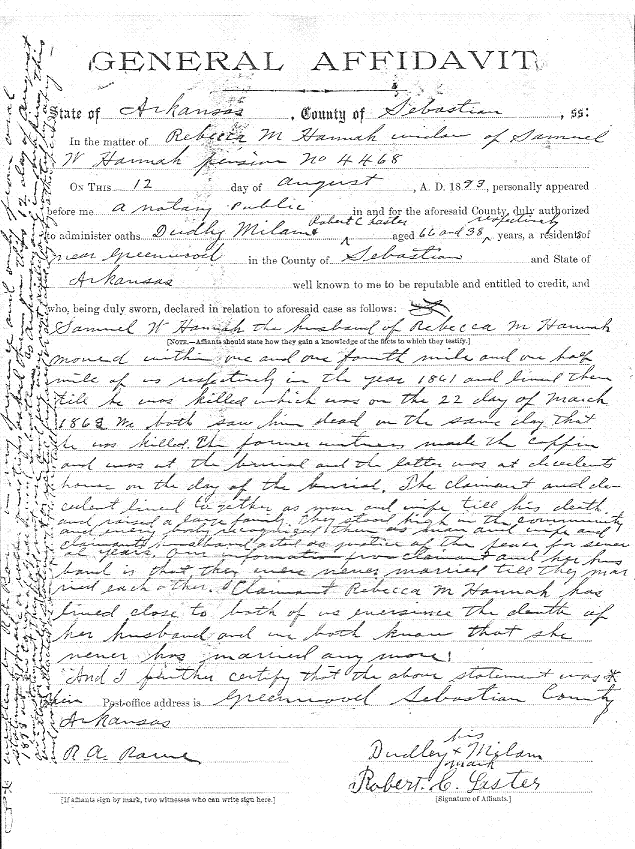 GENERAL AFFIDAVIT
State of Arkansas, County of Sebastian, ss:
In the matter of Rebecca M Hannah widow of Samuel
W Hannah pension No 4468
ON THIS 12 day of august, A. D. 1893, personally appeared
before me a notary Public in and for the aforesaid County, duly authorized
to administer oaths. Dudly Milam & Robert C Laster aged 66 and 38 respectively years, a residents of
near Greenwood in the County of Sebastian and State of
Arkansas well known to me to be reputable and entitled to credit, and
who, being duly sworn, declared in relation to aforesaid case as follows:
Samuel W Hannah the husband of Rebecca M Hannah
[NOTE.—Affiants should state how they gain a knowledge of the facts to which they testify.]
moved within one and one fourth mile and one half
mile of us respetively in the year 1861 and lived there
till he was killed which was on the 22 day of March
1863 We both saw him dead on the same day that
he was killed. The former witness made the coffin
and was at the burrial and the latter was at decedents
house on the day of the burial. The claimant and de-
cedent lived together as man and wife till his death
and raised a large family. They stood high in the community
and every body recognized them as man and wife and
claimants husband acted as justice of the peace for sever
al years. Our information from claimant and her hus
band is that they were never married till they mar
ried each other. Claimant Rebecca M Hannah has
lived close to both of us ever since the death of
her husband and we both know that she
never has married any more!
And I further certify that the above statement was
Post-office address is Greenwood Sebastian County
Arkansas
R. A. Rowe
his
Dudley x Milam
mark
Robert. C. Laster
[If affiants sign by mark, two witnesses who can write sign here.]
[Signature of Affiants.]